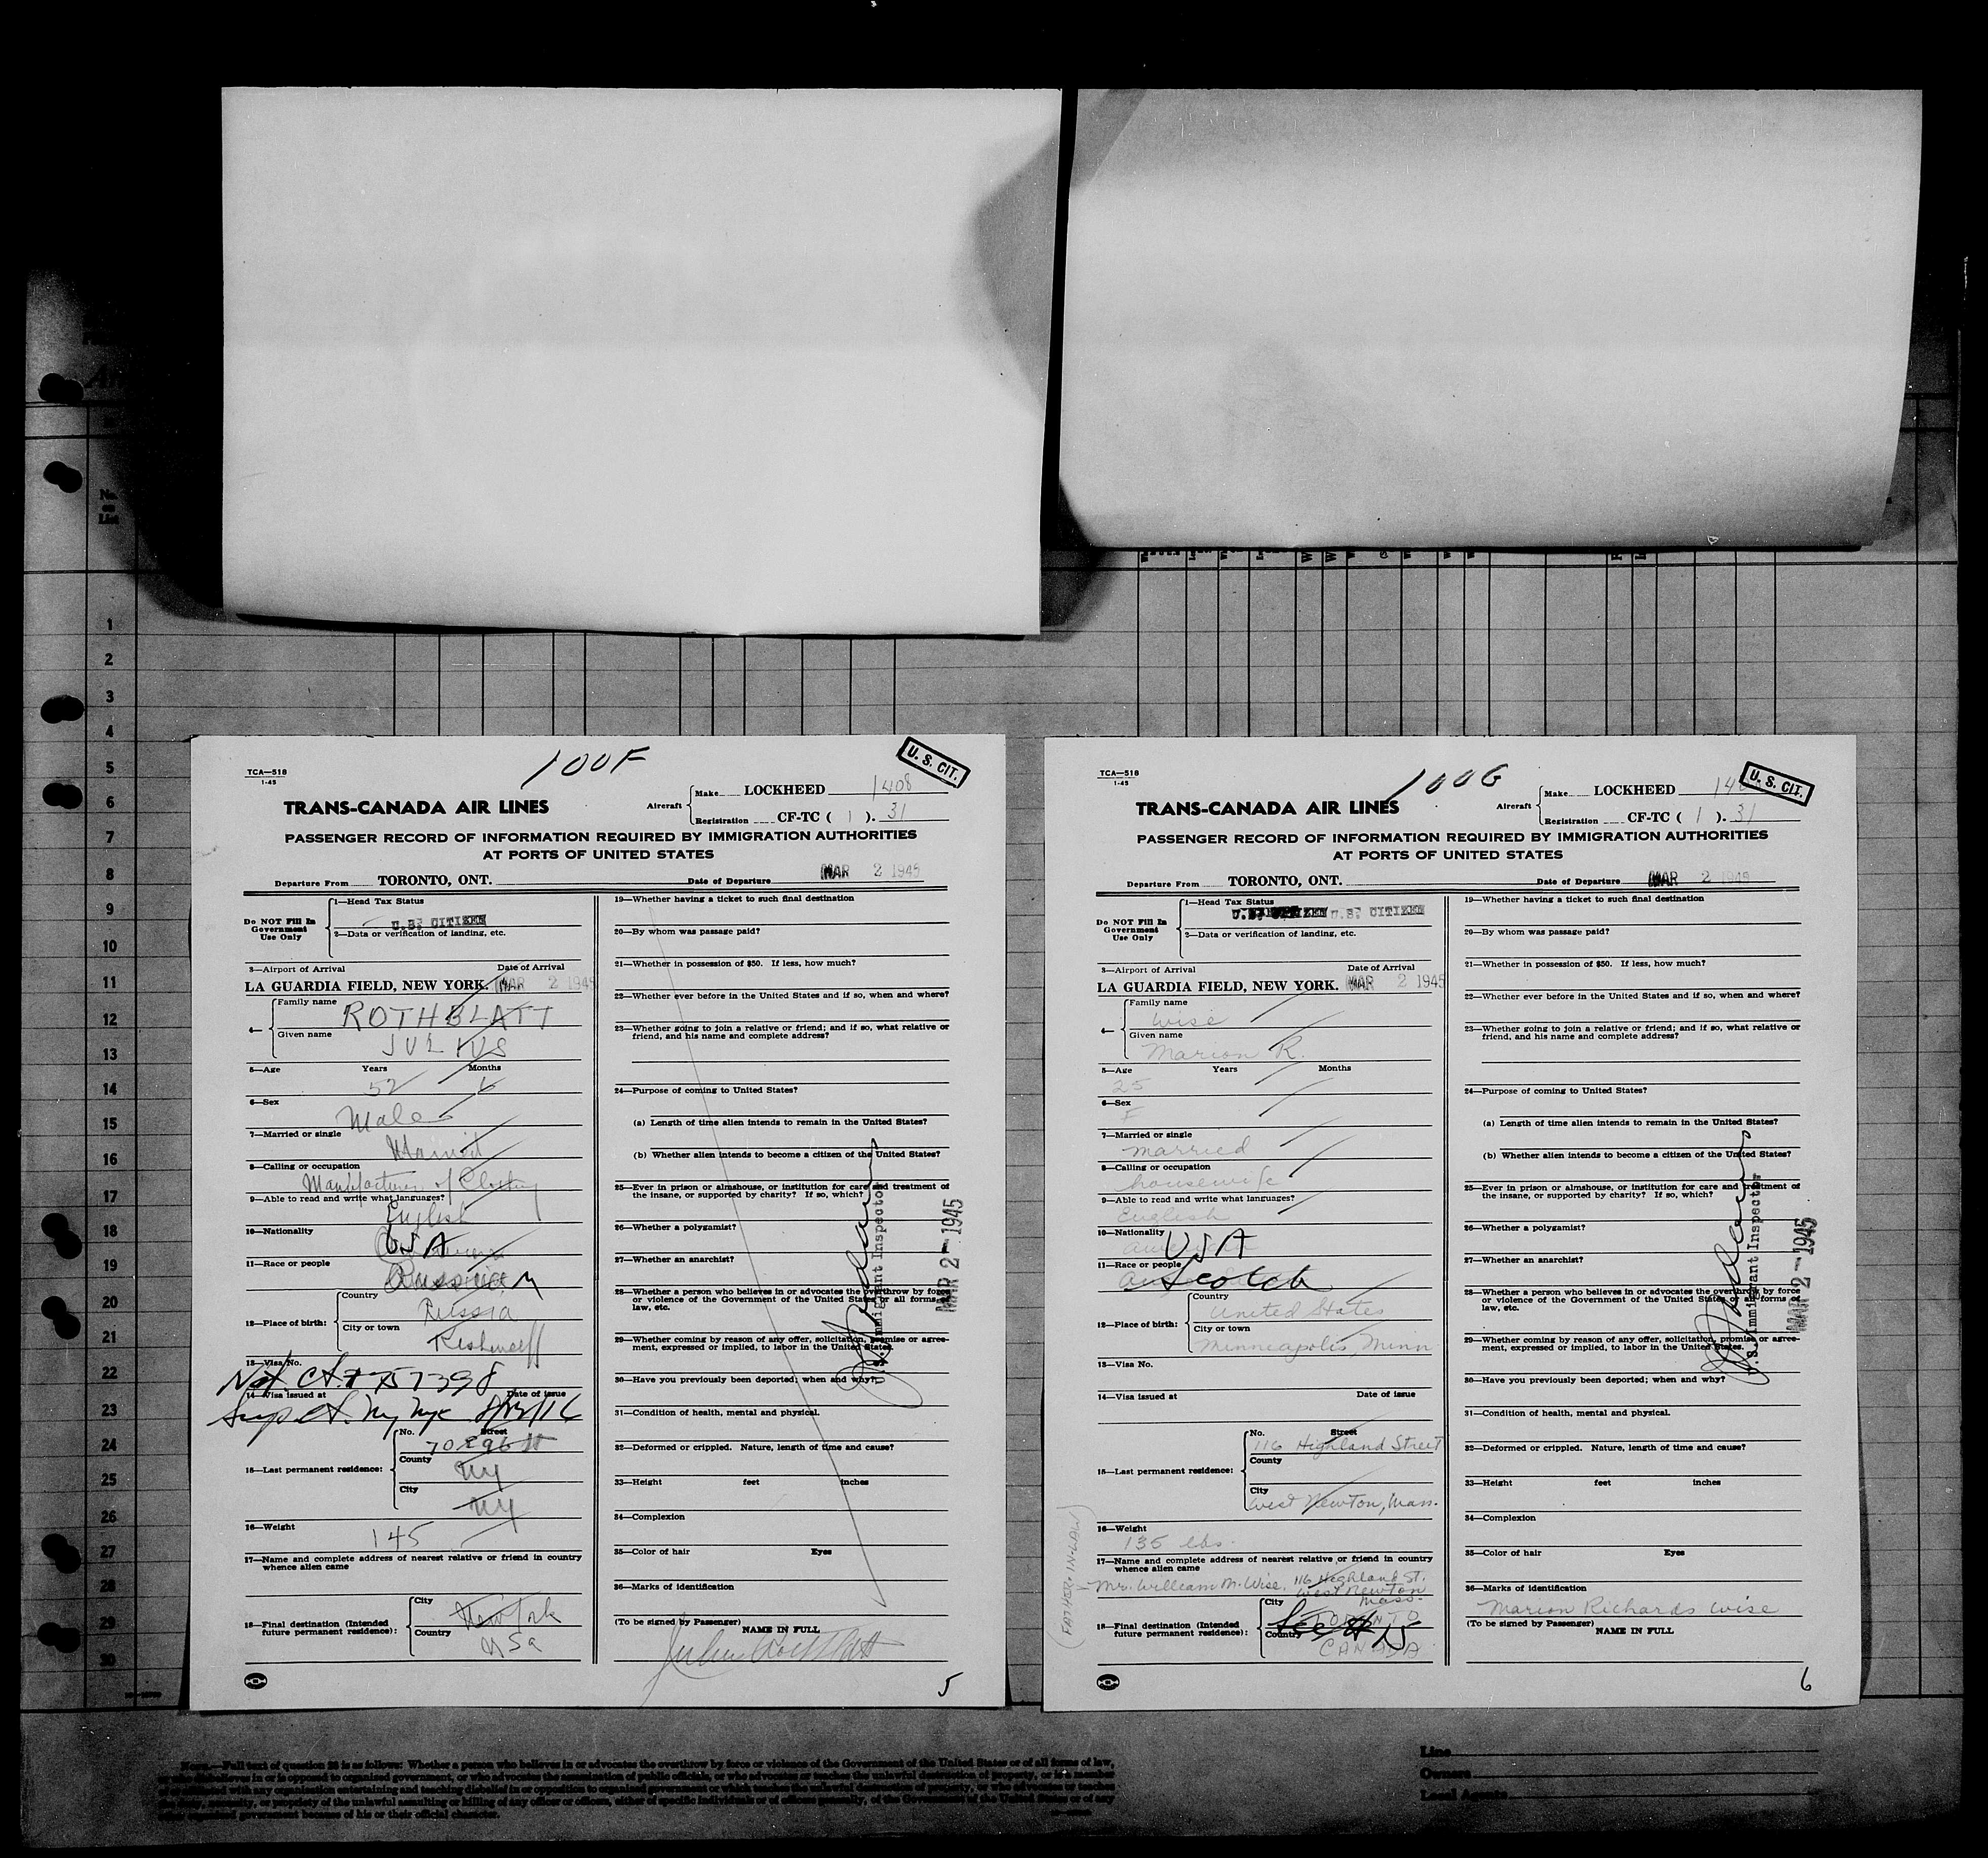 100F
U. S. CIT.
TCA—518
1-45
TRANS-CANADA AIR LINES
Aircraft
Make LOCKHEED 1408
Registration CF-TC ( 1 ). 31
PASSENGER RECORD OF INFORMATION REQUIRED BY IMMIGRATION AUTHORITIES
AT PORTS OF UNITED STATES
Departure From TORONTO, ONT. Date of Departure MAR 2 1945
Do NOT Fill In Government Use Only
1—Head Tax Status
U.S. CITIZEN
2—Data or verification of landing, etc.
3—Airport of Arrival Date of Arrival
LA GUARDIA FIELD, NEW YORK. MAR 2 1945
4— Family name ROTHBLATT
Given name JULIUS
5—Age Years Months
52 6
6—Sex
Male
7—Married or single
Married
8—Calling or occupation
Manufacturer of Clothing
9—Able to read and write what languages?
English
10—Nationality
USA
11—Race or people
Russian
12—Place of birth:
Country
Russia
City or town
Kishineff
13—Visa No.
Nat. Ct. 757398
14—Visa issued at Date of issue
Sup. Ct. Ny Nyc
15—Last permanent residence:
No. Street
70 E 96 St
County
NY
City
NY
16—Weight
145
17—Name and complete address of nearest relative or friend in country
whence alien came
18—Final destination (Intended
future permanent residence):
City
New York
Country
USa
19—Whether having a ticket to such final destination
20—By whom was passage paid?
21—Whether in possession of $50. If less, how much?
22—Whether ever before in the United States and if so, when and where?
23—Whether going to join a relative or friend; and if so, what relative or
friend, and his name and complete address?
24—Purpose of coming to United States?
(a) Length of time alien intends to remain in the United States?
(b) Whether alien intends to become a citizen of the United States?
25—Ever in prison or almshouse, or institution for care and treatment of
the insane, or supported by charity? If so, which?
26—Whether a polygamist?
27—Whether an anarchist?
28—Whether a person who believes in or advocates the overthrow by force
or violence of the Government of the United States or all forms of
law, etc.
29—Whether coming by reason of any offer, solicitation, promise or agree-
ment, expressed or implied, to labor in the United States.
30—Have you previously been deported; when and why?
31—Condition of health, mental and physical.
32—Deformed or crippled. Nature, length of time and cause?
33—Height feet inches
34—Complexion
35—Color of hair Eyes
36—Marks of identification
(To be signed by Passenger)
NAME IN FULL
Julius Rothblatt
U.S. Immigrant Inspector
MAR 2 - 1945
5
100G
U. S. CIT.
TCA—518
1-45
TRANS-CANADA AIR LINES
Aircraft
Make LOCKHEED
Registration CF-TC ( 1 ). 31
PASSENGER RECORD OF INFORMATION REQUIRED BY IMMIGRATION AUTHORITIES
AT PORTS OF UNITED STATES
Departure From TORONTO, ONT. Date of Departure MAR 2 1945
Do NOT Fill In Government Use Only
1—Head Tax Status
U.S. CITIZEN
2—Data or verification of landing, etc.
3—Airport of Arrival Date of Arrival
LA GUARDIA FIELD, NEW YORK. MAR 2 1945
4— Family name
Wise
Given name
Marion R.
5—Age Years Months
25
6—Sex
F
7—Married or single
married
8—Calling or occupation
housewife
9—Able to read and write what languages?
English
10—Nationality
USA
11—Race or people
Scotch
12—Place of birth:
Country
United States
City or town
Minneapolis, Minn
13—Visa No.
14—Visa issued at Date of issue
15—Last permanent residence:
No. Street
116 Highland Street
County
City
West Newton, Mass.
16—Weight
135 lbs.
17—Name and complete address of nearest relative or friend in country
whence alien came
Mr. William M. Wise, 116 Highland St.
West Newton
Mass.
(FATHER-IN-LAW)
18—Final destination (Intended
future permanent residence):
City
TORONTO
See # 15
Country
CANADA
19—Whether having a ticket to such final destination
20—By whom was passage paid?
21—Whether in possession of $50. If less, how much?
22—Whether ever before in the United States and if so, when and where?
23—Whether going to join a relative or friend; and if so, what relative or
friend, and his name and complete address?
24—Purpose of coming to United States?
(a) Length of time alien intends to remain in the United States?
(b) Whether alien intends to become a citizen of the United States?
25—Ever in prison or almshouse, or institution for care and treatment of
the insane, or supported by charity? If so, which?
26—Whether a polygamist?
27—Whether an anarchist?
28—Whether a person who believes in or advocates the overthrow by force
or violence of the Government of the United States or all forms of
law, etc.
29—Whether coming by reason of any offer, solicitation, promise or agree-
ment, expressed or implied, to labor in the United States.
30—Have you previously been deported; when and why?
31—Condition of health, mental and physical.
32—Deformed or crippled. Nature, length of time and cause?
33—Height feet inches
34—Complexion
35—Color of hair Eyes
36—Marks of identification
Marion Richards Wise
(To be signed by Passenger)
NAME IN FULL
U.S. Immigrant Inspector
MAR 2 - 1945
6
1
2
3
4
5
6
7
8
9
10
11
12
13
14
15
16
17
18
19
20
21
22
23
24
25
26
27
28
29
30
NOTE.—Full text of question 28 is as follows: Whether a person who believes in or advocates the overthrow by force or violence of the Government of the United States or of all forms of law,
Line
Owners
Local Agents